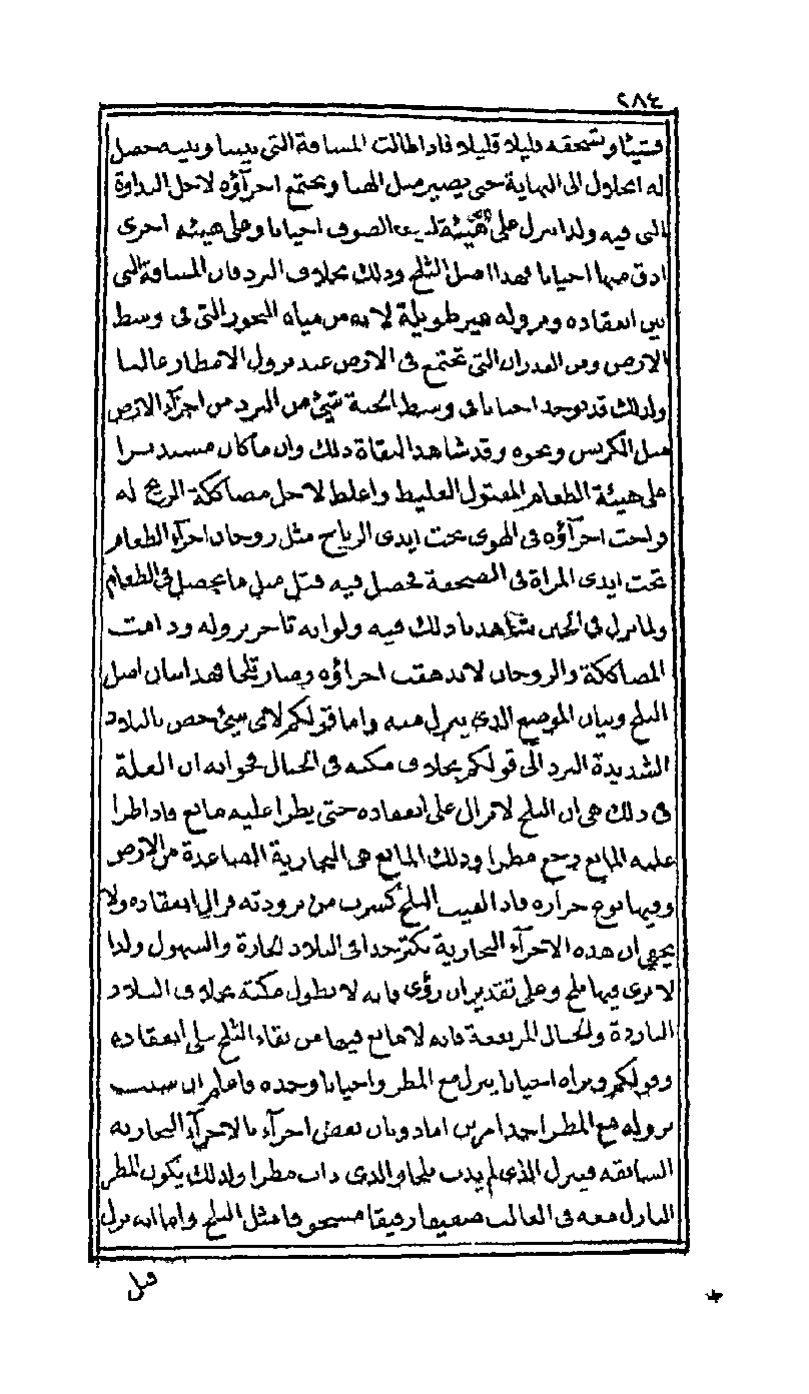 ٢٨٤
فتيتا وتسحقه قليلا قليلا فاذا طالت المسافة التى بيننا وبينه حصل
له انحلال الى النهاية حتى يصير مثل الهبا وتجتمع اجزآؤه لاجل النداوة
التى فيه ولذا ينزل على هيئة ندف الصوف احيانا وعلى هيئة اخرى
ادق منها احيانا فهذا اصل الثلج وذلك بخلاف البرد فان المسافة التى
بين انعقاده ونزوله غير طويلة لانه من مياه البحور التى فى وسط
الارض ومن الغدران التى تجتمع فى الارض عند نزول الامطار غالبا
ولذلك قد يوجد احيانا فى وسط الحبة شئ من البرد من اجزآء الارض
مثل الكريس ونحوه وقد شاهد الثقاة ذلك وانما كان مستديرا
على هيئة الطعام المفتول الغليظ واغلظ لاجل مصاككة الريح له
فراحت اجزآؤه فى الهوى تحت ايدى الرياح مثل روحان اجزآء الطعام
تحت ايدى المراة فى الصحفة فحصل فيه فتل مثل ما يحصل فى الطعام
ولما نزل فى الحين شاهدنا ذلك فيه ولو انه تاخر نزوله ودامت
المصاككة والروحان لاندهقت اجزاؤه وصار ثلجا فهذا بيان اصل
الثلج وبيان الموضع الذى ينزل منه واما قولكم لاى شئ خص بالبلاد
الشديدة البرد الى قولكم بخلاف مكثه فى الجبال فجوابه ان العلة
فى ذلك هى ان الثلج لا يزال على انعقاده حتى يطرا عليه مانع فاذا طرا
عليه المانع رجع مطرا وذلك المانع هى البخارية الصاعدة من الارض
وفيها نوع حرارة فاذا لقيت الثلج كسرت من برودته فزال انعقاده ولا
يخفى ان هذه الاجزآء البخارية تكثر جدا فى البلاد الحارة والسهول ولذا
لا يرى فيها ثلج وعلى تقدير ان رؤى فانه لا يطول مكثه بخلاف البلاد
الباردة والجبال المرتفعة فانه لا مانع فيها من بقاء الثلج على انعقاده
وقولكم ونراه احيانا ينزل مع المطر واحيانا وحده فاعلم ان سبب
نزوله مع المطر احد امرين اما ذوبان بعض اجزآء بالاجزآء البخارية
السابقة فينزل الذى لم يذب ثلجا والذى ذاب مطرا ولذلك يكون المطر
النازل معه فى الغالب ضعيفا رقيقا مسحوقا مثل الثلج واما انه نزل
قبل